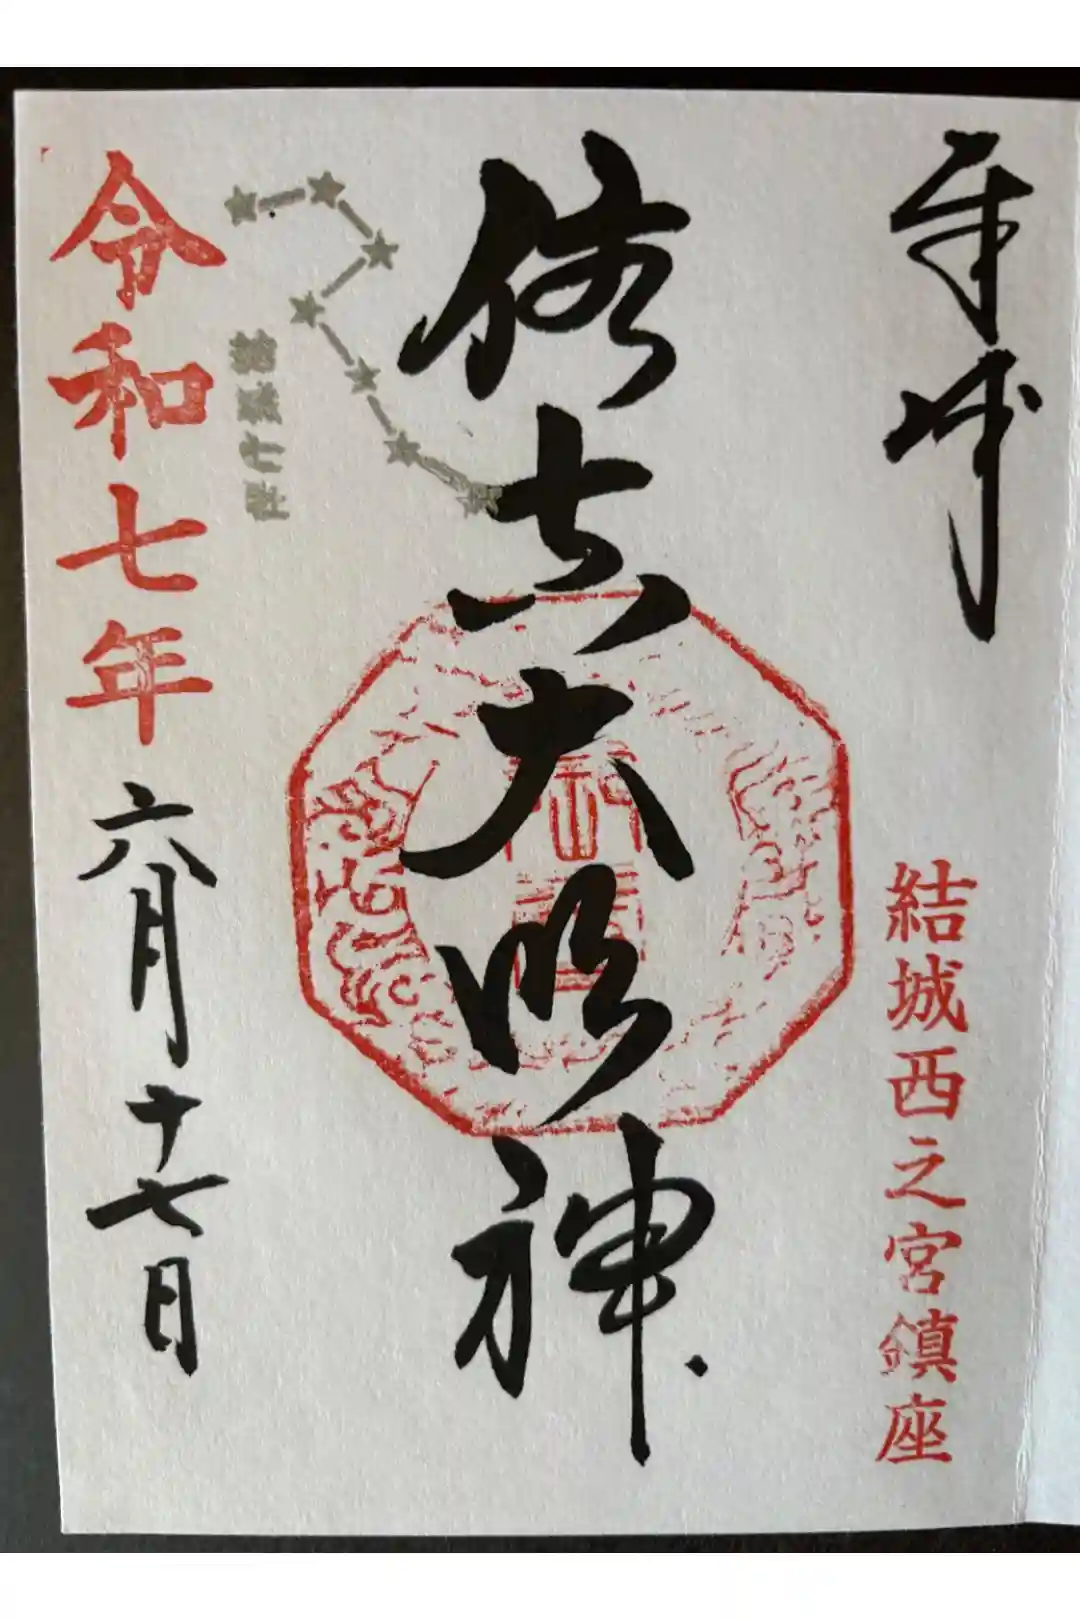 奉拝
結城西之宮鎮座
大明神
結城七社
令和七年六月十七日